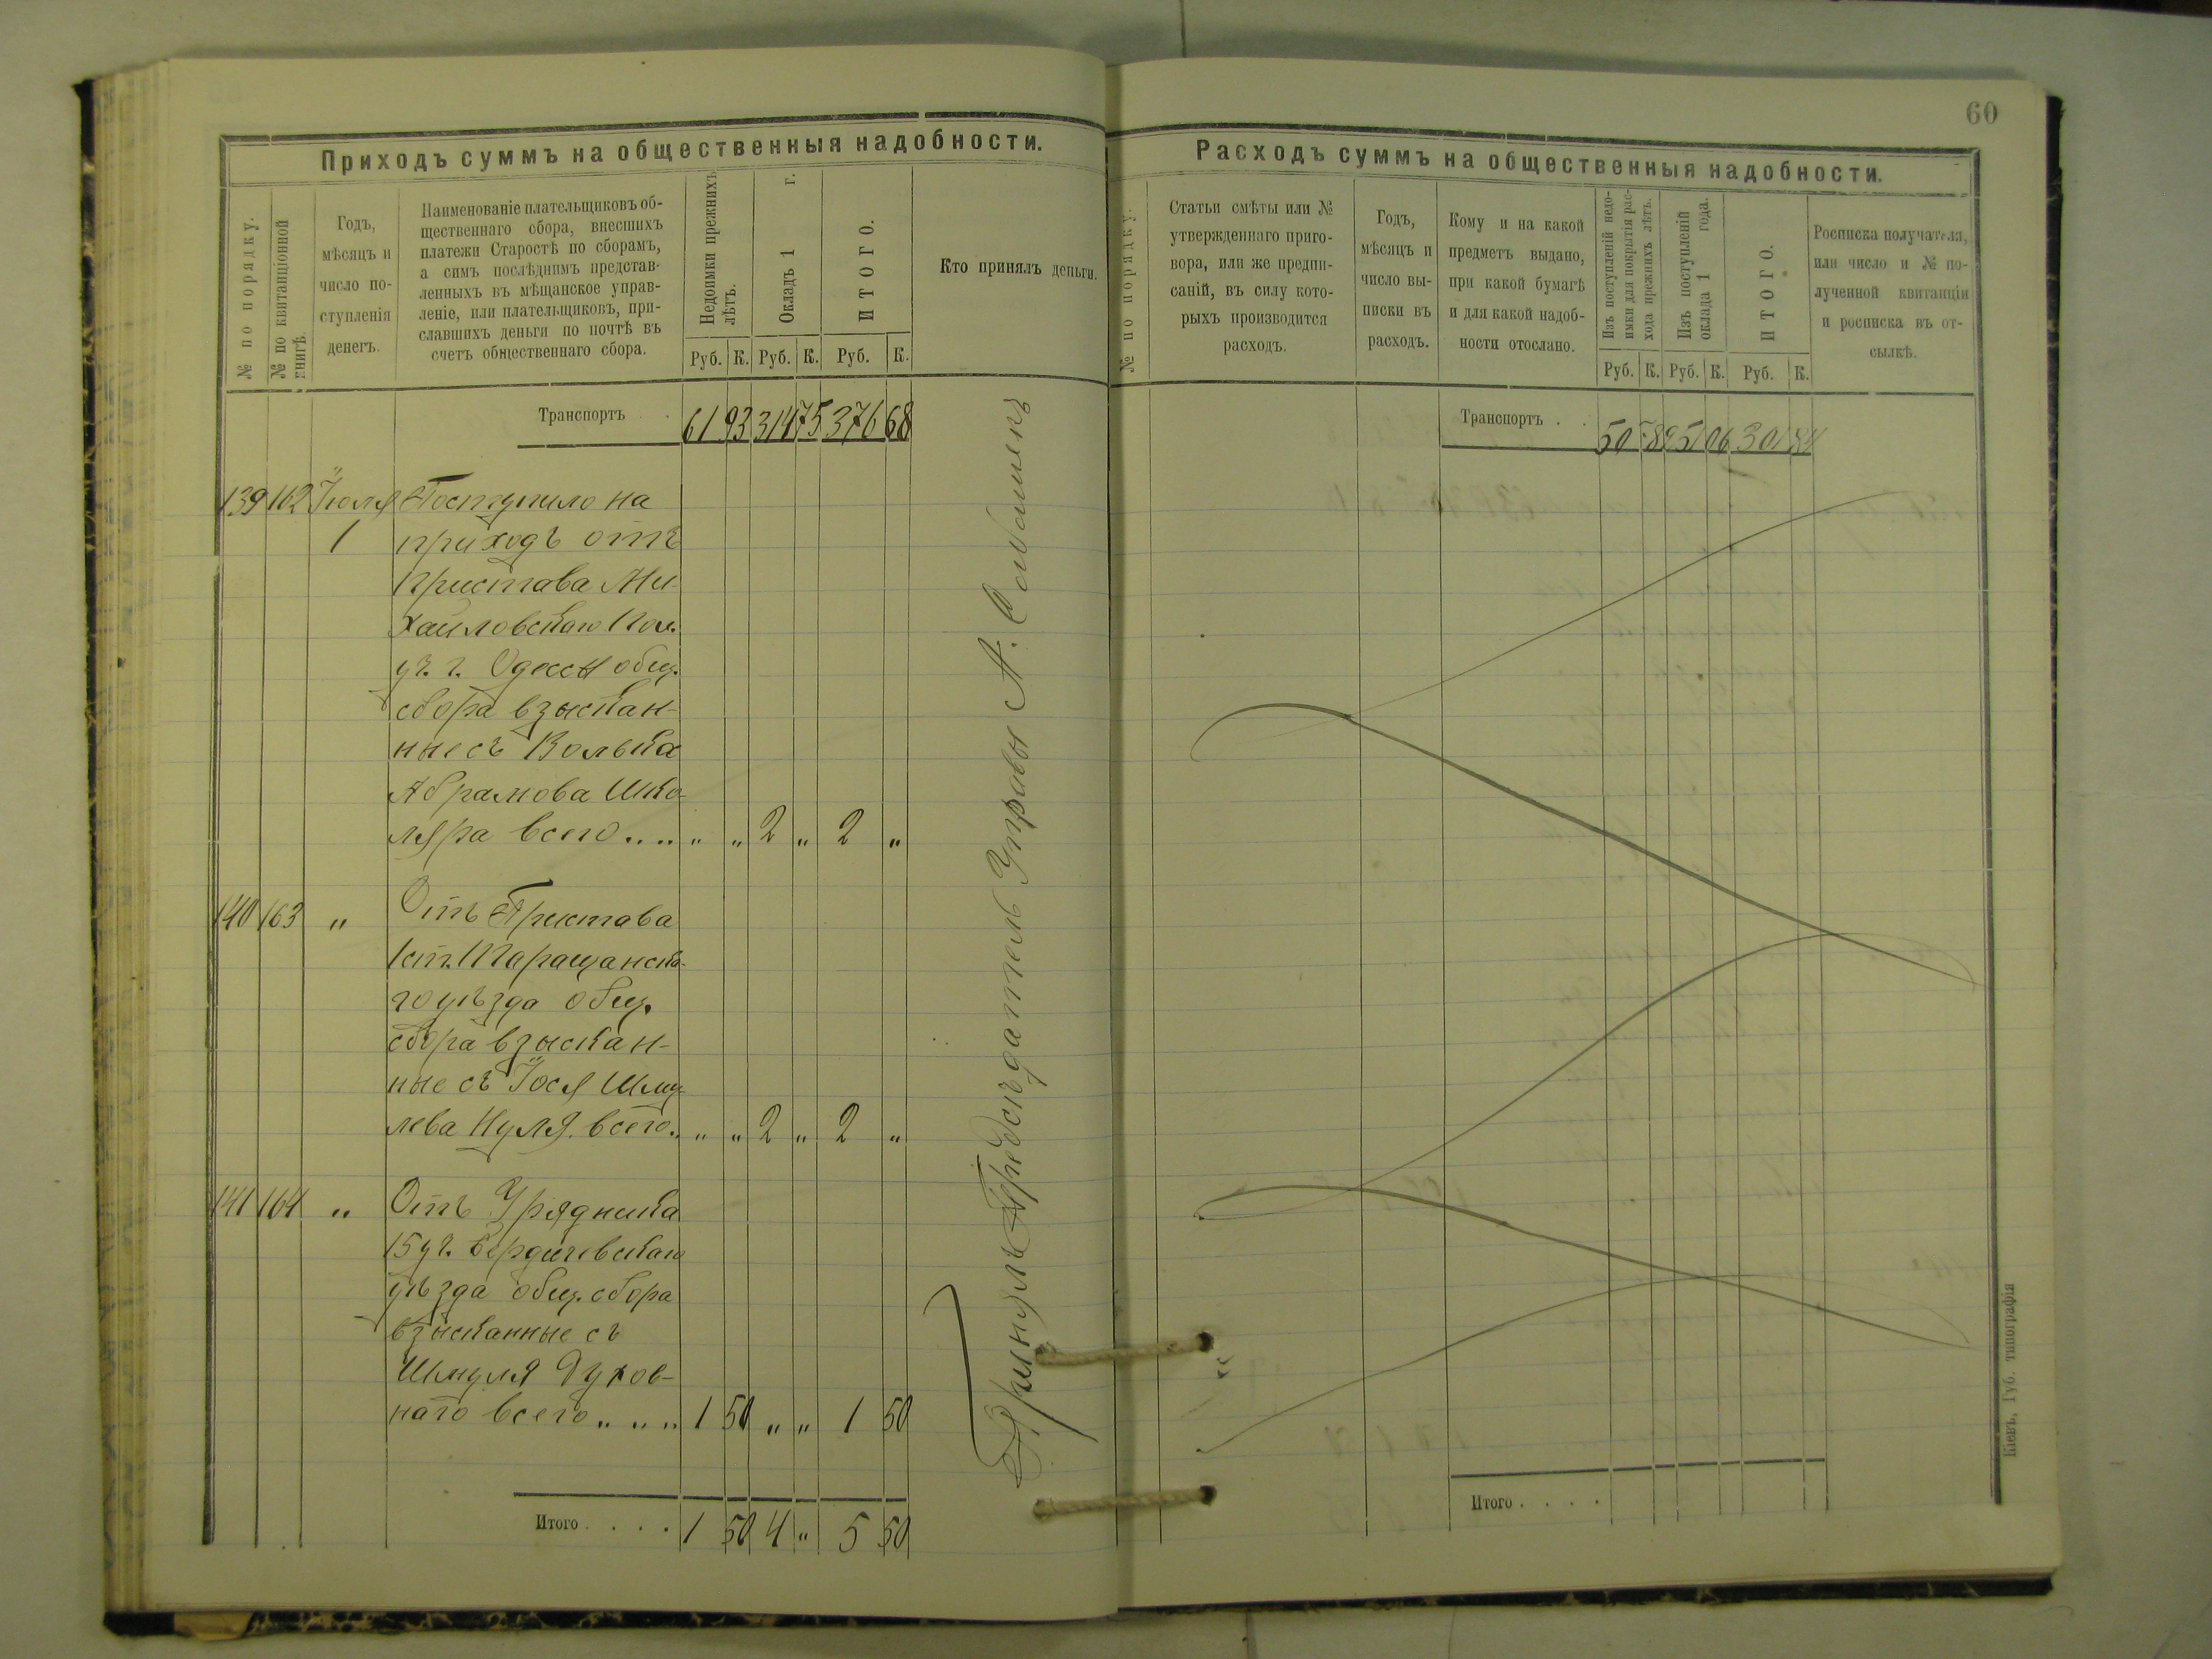 60
Приходъ суммъ на общественныя надобности.
№ по порядку.
№ по квитанціонной книгѣ.
Годъ,
мѣсяцъ и
число по-
ступленія
денегъ.
Наименованіе плательщиковъ об-
щественнаго сбора, внесшихъ
платежи Старостѣ по сборамъ,
а симъ послѣднимъ представ-
ленныхъ въ мѣщанское управ-
леніе, или плательщиковъ, при-
славшихъ деньги по почтѣ въ
счетъ общественнаго сбора.
Недоимки прежнихъ
лѣтъ.
Окладъ 1 г.
ИТОГО.
Руб. К. Руб. К. Руб. К.
Кто принялъ деньги.
Транспортъ . . 61 93 314 75 376 68
139 162 Іюля Поступило на
1 приходъ отъ
Пристава Ми-
хайловскаго Пол.
уч. г. Одессы общ.
сбора взыскан-
ные съ Волька
Абрамова Шко-
ляра всего.... " " 2 " 2 "
140 163 " Отъ Пристава
1 ст. Таращанска-
го уѣзда общ.
сбора взыскан-
ные съ Іося Шму-
лева Нуля всего.. " " 2 " 2 "
141 164 " Отъ Урядника
15 уч. Бердичевскаго
уѣзда общ. сбора
взысканные съ
Шмуля Духов-
наго всего " " " 1 50 " " 1 50
Итого . . . . 1 50 4 " 5 50
Принялъ Предсѣдатель Управы А.
Расходъ суммъ на общественныя надобности.
№ по порядку.
Статьи смѣты или №
утвержденнаго приго-
вора, или же предпи-
саній, въ силу кото-
рыхъ производится
расходъ.
Годъ,
мѣсяцъ и
число вы-
писки въ
расходъ.
Кому и на какой
предметъ выдано,
при какой бумагѣ
и для какой надоб-
ности отослано.
Изъ поступленій недо-
имки для покрытія рас-
хода прежнихъ лѣтъ.
Изъ поступленій
оклада 1 года.
ИТОГО.
Руб. К. Руб. К. Руб. К.
Росписка получателя,
или число и № по-
лученной квитанціи
и росписка въ от-
сылкѣ.
Транспортъ . . 50 78 251 06 301 84
Итого . . . .
Кіевъ, Губ. типографія